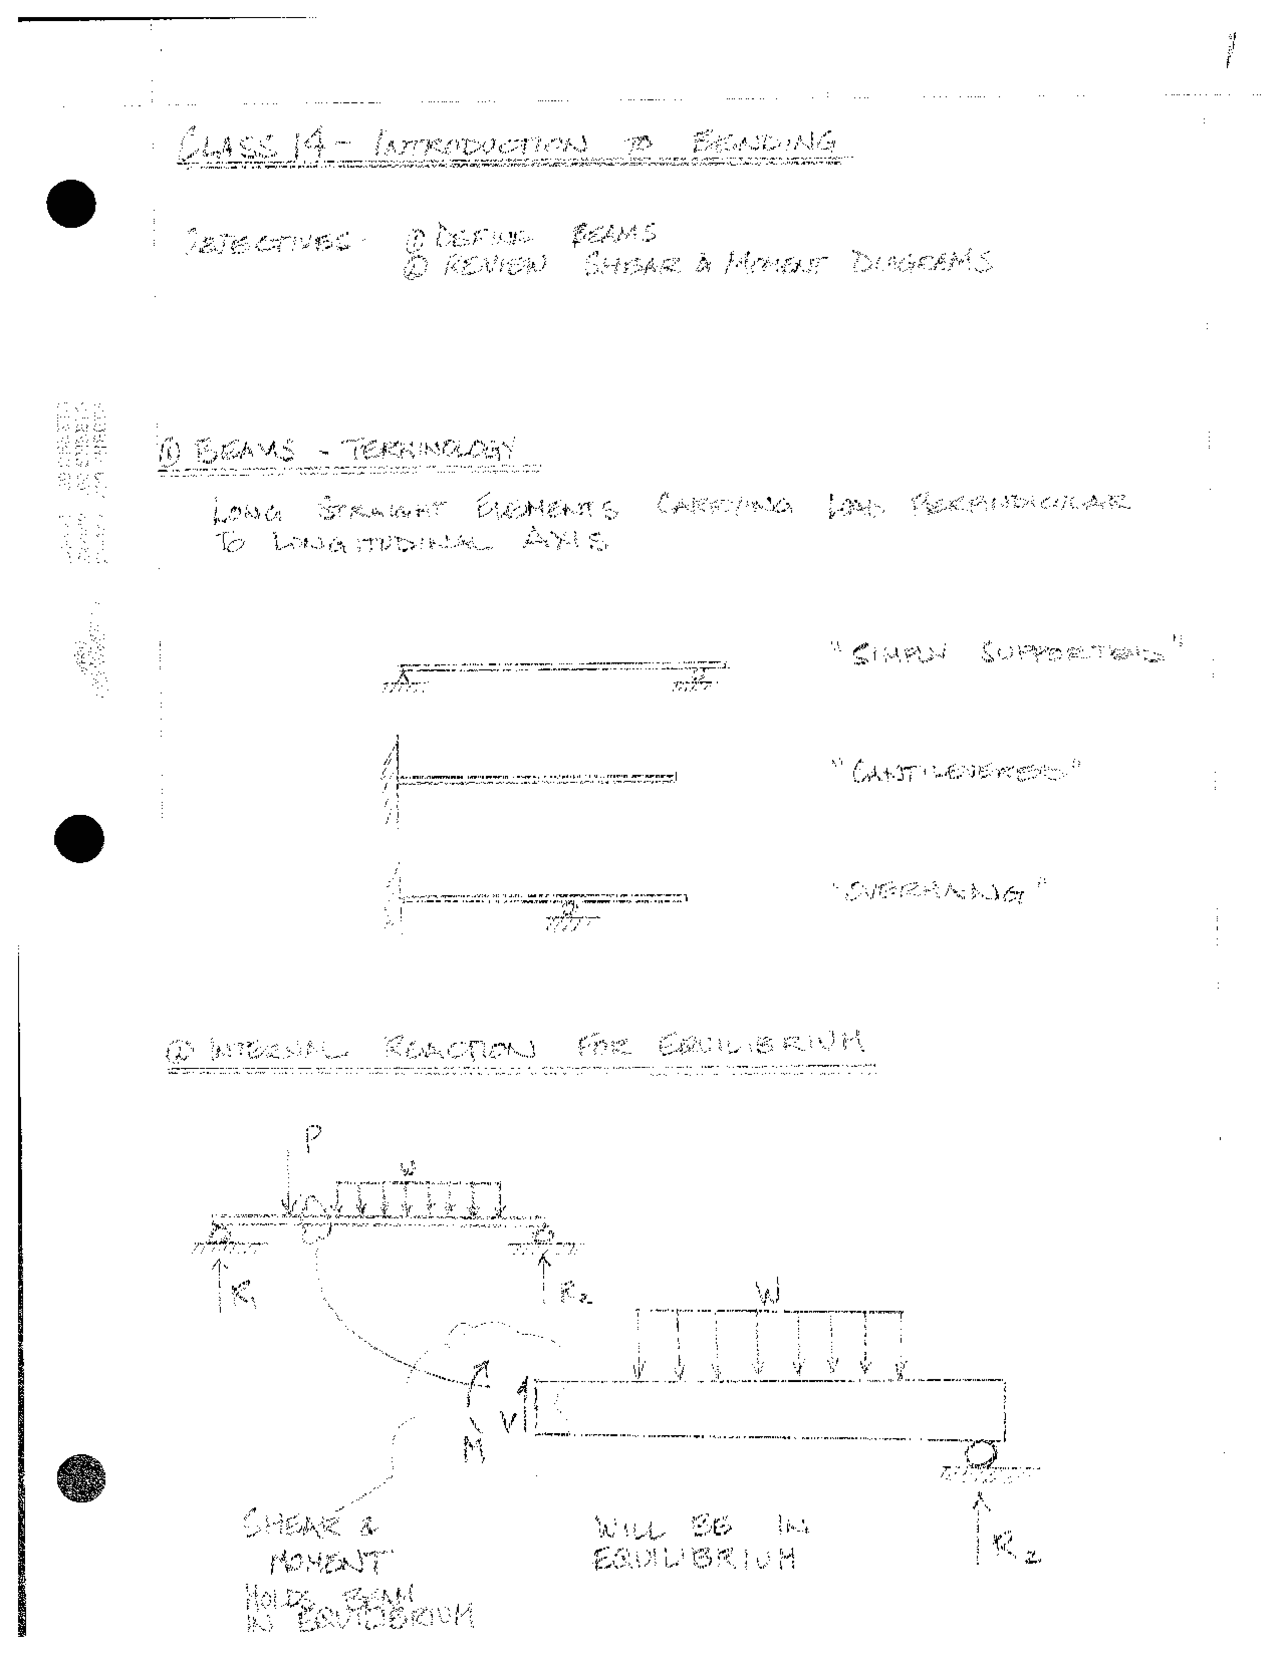 1
CLASS 14 - INTRODUCTION TO BENDING
OBJECTIVES - ① DEFINE BEAMS
② REVIEW SHEAR & MOMENT DIAGRAMS
① BEAMS - TERMINOLOGY
LONG STRAIGHT ELEMENTS CARRYING LOAD PERPENDICULAR
TO LONGITUDINAL AXIS
"SIMPLY SUPPORTED"
"CANTILEVERED"
"OVERHANING"
② INTERNAL REACTION FOR EQUILIBRIUM
P
W
R1
R2
W
V
M
R2
SHEAR &
MOMENT
HOLDS BEAM
IN EQUILIBRIUM
WILL BE IN
EQUILIBRIUM